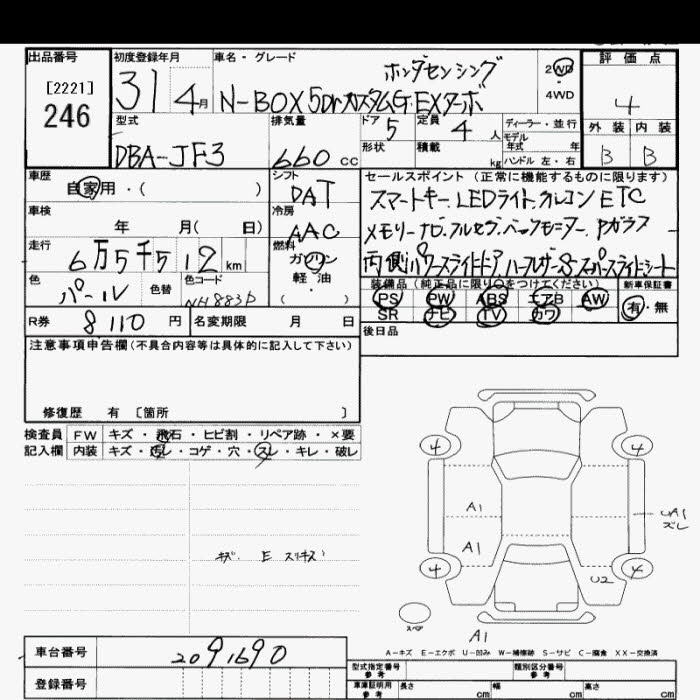 出品番号
[2221]
246
初度登録年月
31 4月
車名・グレード
ホンダセンシング
N-BOX 5Dr.カスタムG・EXターボ
2WD
4WD
評価点
4
外装 内装
B B
型式
DBA-JF3
排気量
660 cc
ドア 5
形状
定員 4 人
積載 kg
ディーラー・並行
モデル年式 年
ハンドル 左・右
車歴
自家用・( )
車検
年 月( 日)
走行
6万5千512 km
色
パール
色替
色コード
NH883P
シフト
DAT
冷房
AAC
燃料
ガソリン
軽・油
・( )
セールスポイント(正常に機能するものに限ります)
スマートキー LEDライト クルコン ETC
メモリーナビ フルセグ バックモニター Pガラス
両側パワースライドドア ハーフレザーS スーパースライドシート
装備品(純正品に限り○をつけてください)
PS PW ABS エアB AW
SR ナビ TV カワ
新車保証書
有・無
R券 8110 円
名変期限 月 日
後日品
注意事項申告欄(不具合内容等は具体的に記入して下さい)
修復歴 有 〔箇所 〕
検査員記入欄
FW キズ・飛石・ヒビ割・リペア跡・×要
内装 キズ・汚レ・コゲ・穴・スレ・キレ・破レ
キズ E スリキズ
4 4
A1
A1
UA1
ズレ
4 4
U2
スペア
A1
A−キズ E−エクボ U−凹み W−補修跡 S−サビ C−腐食 XX−交換済
車台番号 2091690
登録番号
型式指定番号 参考
類別区分番号 参考
車庫証明用 参考 長さ cm 幅 cm 高さ cm